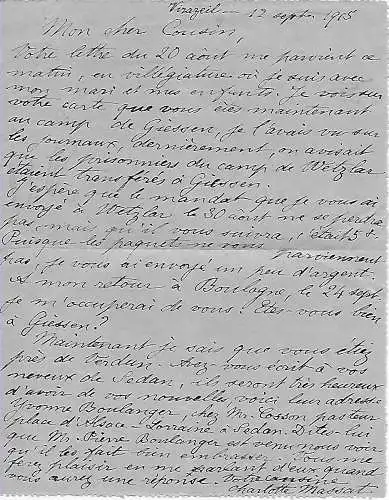 Virazeil — 12 septbre 1915
Mon cher Cousin,
Votre lettre du 20 août me parvient ce
matin, en villégiature où je suis avec
mon mari et mes enfants. Je vois sur
votre carte que vous êtes maintenant
au camp de Giessen, je l'avais vu sur
les journaux, dernièrement, on avisait
que les prisonniers du camp de Wetzlar
étaient transférés à Giessen.
J'espère que le mandat que je vous ai
envoyé à Wetzlar le 30 août ne se perdra
pas, mais qu'il vous suivra, c'était 5
Puisque les paquets ne vous
parviennent
pas, je vous ai envoyé un peu d'argent.
A mon retour à Boulogne, le 24 sept
je m'occuperai de vous! Etes-vous bien
à Giessen?
Maintenant je sais que vous étiez
près de Verdun. Avez-vous écrit à vos
neveux de Sedan, ils seront très heureux
d'avoir de vos nouvelles, voici leur adresse
Yvonne Boulanger, chez Mr. Cosson pasteur
place d'Alsace-Lorraine à Sedan. Dites-lui
que Mr. Pierre Boulanger est venu nous voir
qu'il les fait bien embrasser. Vous me
ferez plaisir en me parlant d'eux quand
vous aurez une réponse. Votre cousine
Charlotte Massat